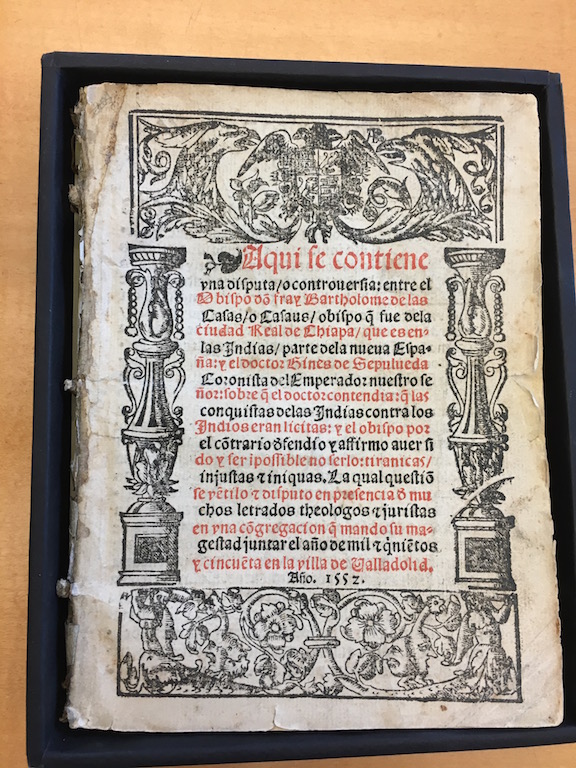 Aqui se contiene
vna disputa/o controuersia: entre el
Obispo dõ fray Bartholome de las
Casas/o Casaus/ obispo q̃ fue dela
ciudad Real de Chiapa/ que es en-
las Indias/ parte dela nueua Espa-
ña: y el doctor Gines de Sepulueda
Coronista del Emperador nuestro se
ñor: sobre q̃ el doctor contendia: q̃ las
conquistas delas Indias contra los
Indios eran licitas: y el obispo por
el cõtrario d̃fendio y affirmo auer si
do y ser ĩpossible no serlo: tiranicas/
injustas e iniquas. La qual questiõ
se vẽtilo e disputo en presencia d̃ mu
chos letrados theologos e juristas
en vna cõgregacion q̃ mando su ma-
gestad juntar el año de mil e q̃niẽtos
y cincuẽta en la villa de Valladolid.
Año. 1552.